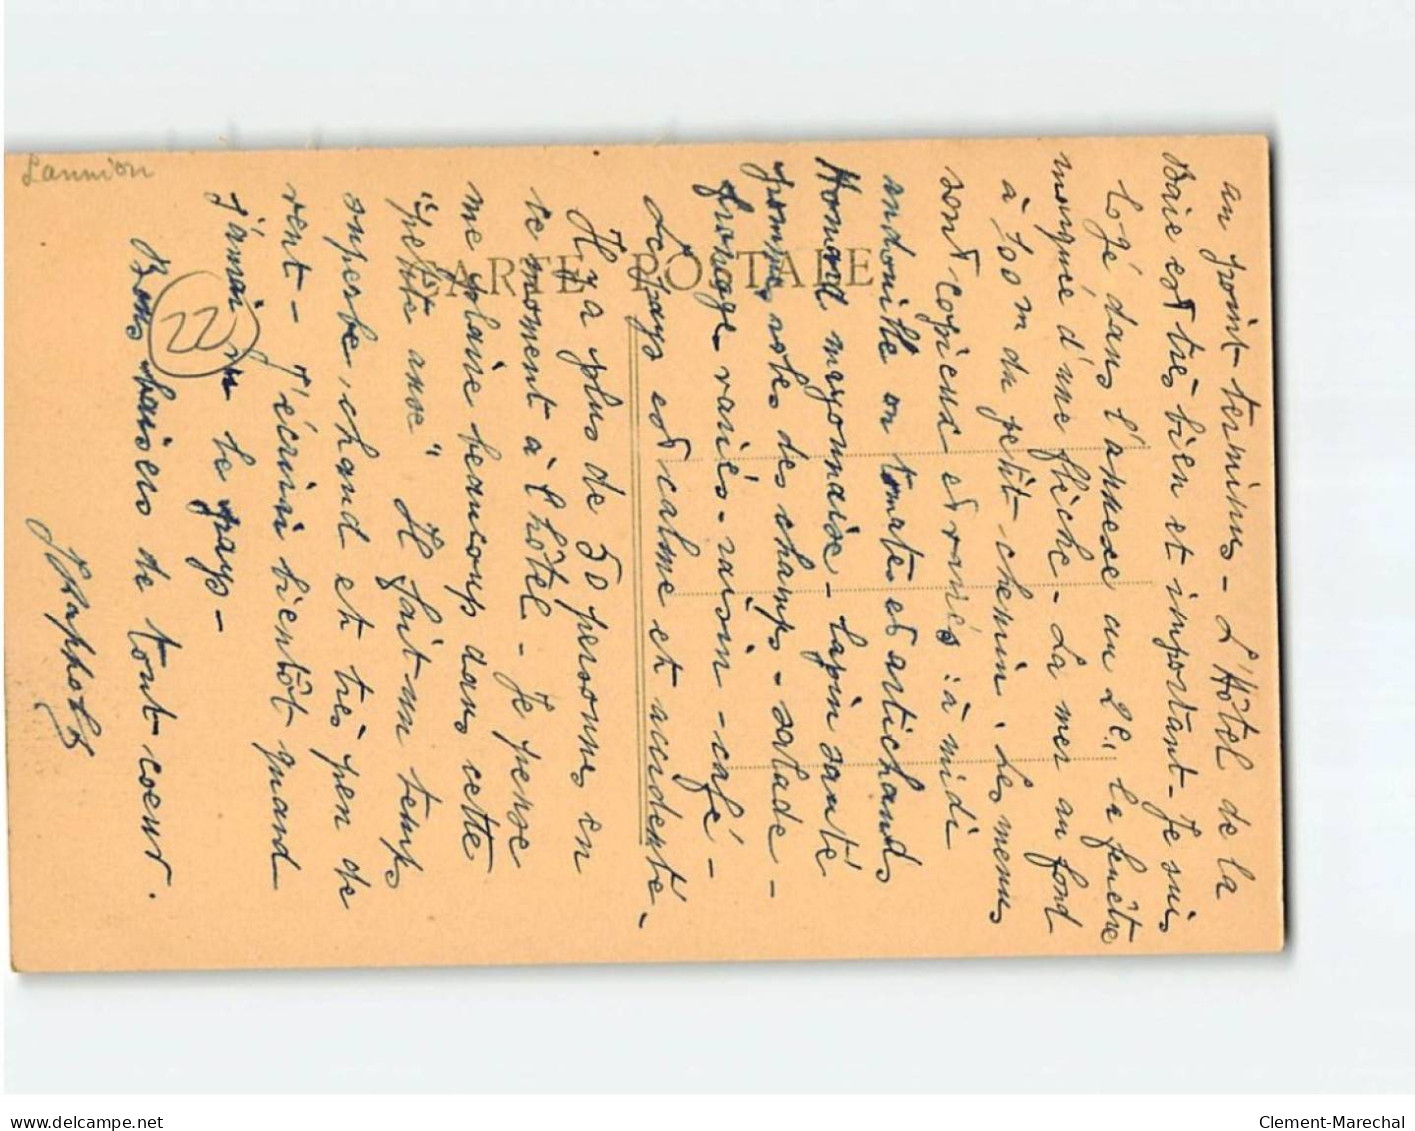 Lannion
CARTE POSTALE
22
au point terminus - L'Hôtel de la
Baie est très bien et important - Je suis
logé dans l'annexe au 2e, la fenêtre
marquée d'une flèche - La mer au fond
à 700 m du petit chemin. Les menus
sont copieux et variés : à midi
andouille ou tomates et artichauds
Homard mayonnaise - lapin sauté
pommes rotes des champs - salade -
fromage variés - raisin - café -
Le pays est calme et accidenté -
Il y a plus de 50 personnes en
ce moment à l'hôtel - Je pense
me plaire beaucoup dans cette
"petite anse" Il fait un temps
superbe, chaud et très peu de
vent - J'écrirai bientôt quand
j'aurai vu le pays -
Bons baisers de tout coeur.
delcampe.net
Clement-Marechal